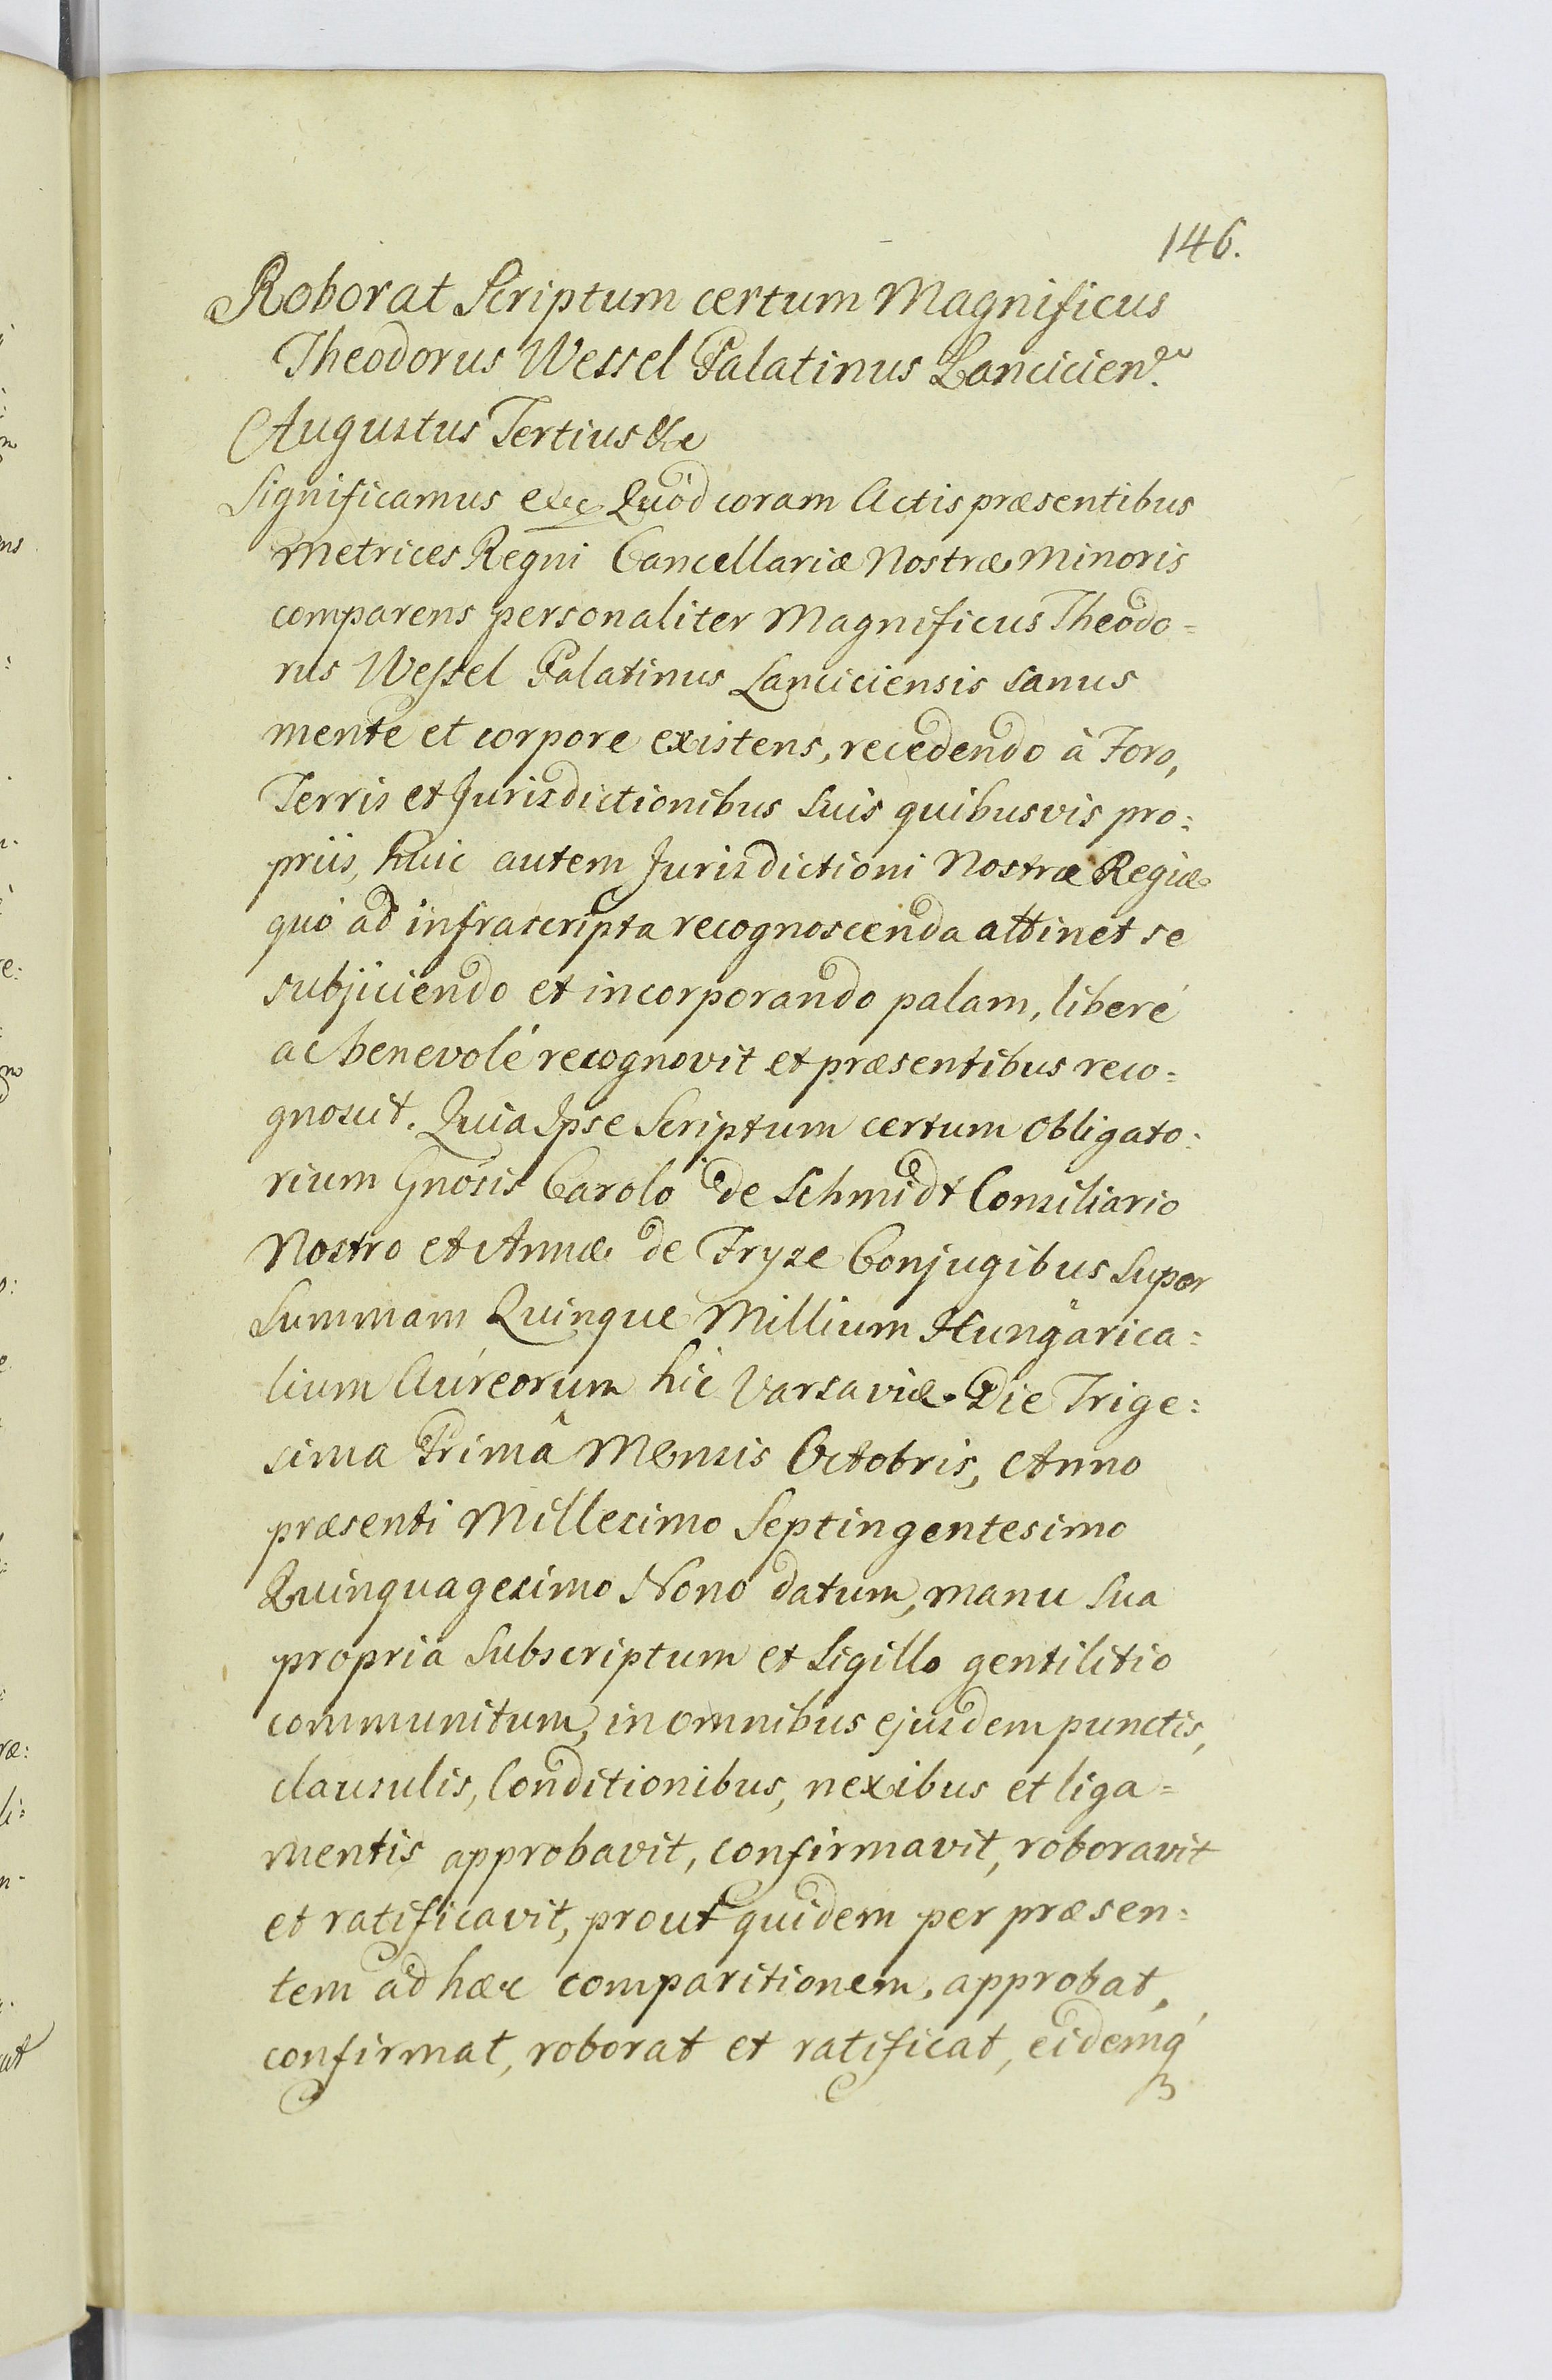 146.
Roborat Scriptum certum Magnificus
Theodorus Wessel Palatinus Lancicien.
Augustus Tertius &c
Significamus etc Quòd coram Actis præsentibus
Metrices Regni Cancellariæ Nostræ Minoris
comparens personaliter Magnificus Theodo=
rus Wessel Palatinus Lanciciensis sanus
mente et corpore existens, recedendo à Foro,
Terris et Jurisdictionibus suis quibusvis pro:
priis, huic autem Jurisdictioni Nostræ Regiæ
quò ad infrascripta recognoscenda attinet se
subjiciendo et incorporando palam, liberé
ac benevolé recognovit et præsentibus reco=
gnoscit. Quia Ipse Scriptum certum Obligato:
rium Gnosis Carolo de Schmidt Consiliario
Nostro et Annæ de Fryze Conjugibus super
Summam Quinque Millium Hungarica:
lium Aureorum hic Varsaviæ Die Trige:
sima Primâ Mensis Octobris, Anno
præsenti Millesimo Septingentesimo
Quinquagesimo Nono datum, manu sua
propria subscriptum et Sigillo gentilitio
communitum, in omnibus ejusdem punctis,
clausulis, Conditionibus, nexibus et liga=
mentis approbavit, confirmavit, roboravit
et ratificavit, prout quidem per præsen:
tem ad hæc comparitionem, approbat,
confirmat, roborat et ratificat, eidemq́